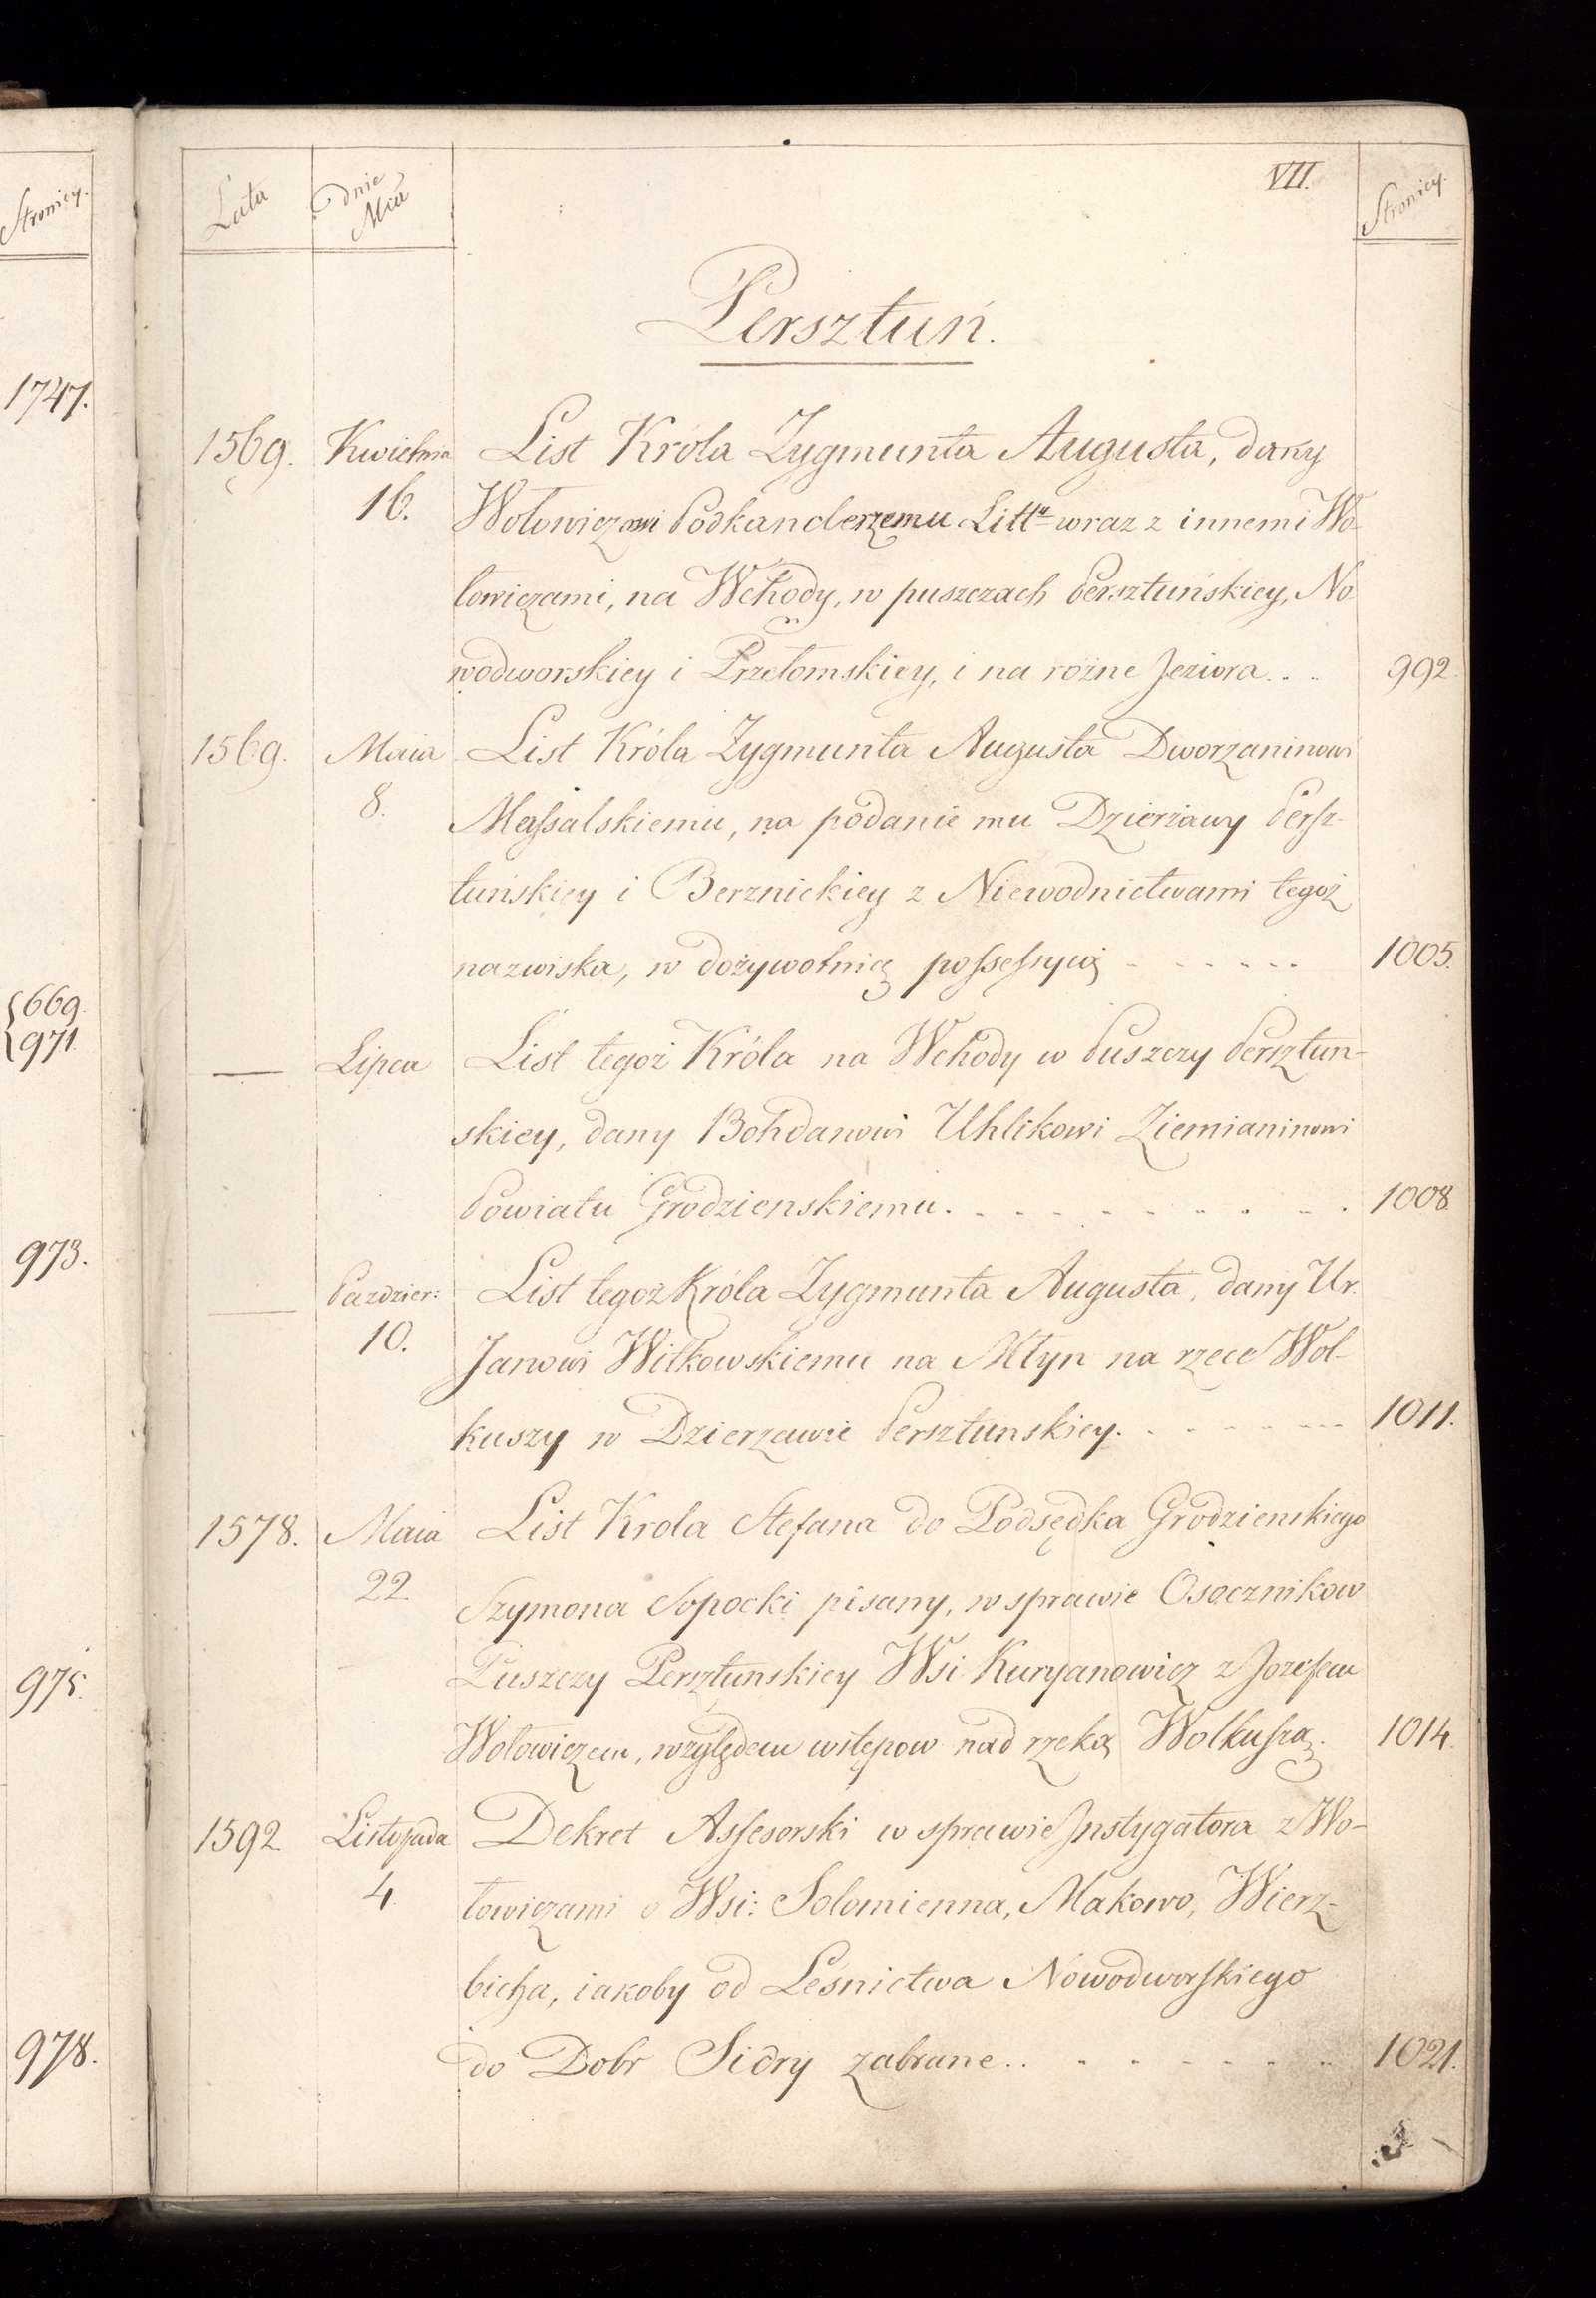 Stronicy.
1747.
669.
971.
973.
975.
978.
Lata
dnie
Mca
VII.
Stronicy.
Persztuń.
1569. Kwietnia List Króla Zygmunta Augusta, dany
16. Wołowiczowi Podkanclerzemu Litt. wraz z innemi Wo-
łowiczami, na Wchody, w puszczach Persztuńskiey, No
wodworskiey i Przełomskiey, i na rożne Jeziora . . . 992.
1569. Maia List Króla Zygmunta Augusta Dworzaninowi
8. Massalskiemu, na podanie mu Dzierżawy Persz-
tuńskiey i Berznickiey z Niewodnictwami tegoż
nazwiska, w dożywotnią possessyią - - - - - - 1005.
— Lipca List tegoż Króla na Wchody w Puszczy Persztun-
skiey, dany Bohdanowi Uhlikowi Ziemianinowi
Powiatu Grodzienskiemu. - - - - - - - - - - 1008
— Pazdzier: List tegoż Króla Zygmunta Augusta, dany Ur.
10. Janowi Witkowskiemu na Młyn na rzece Woł-
kuszy w Dzierzawie Persztunskiey. - - - - - - 1011.
1578. Maia List Krola Stefana do Podsędka Grodzienskiego
22. Szymona Sopocki pisany, w sprawie Osocznikow
Puszczy Persztunskiey Wsi Kuryanowicz z Jozefem
Wołowiczem, względem wstępow nad rzeką Wolkuszą. 1014.
1592 Listopada Dekret Assesorski w sprawie Instygatora z Wo-
4. łowiczami o Wsi: Solomienna, Makowo, Wierz-
bicha, iakoby od Leśnictwa Nowodworskiego
do Dobr Sidry zabrane . . - - - - - - - 1021.